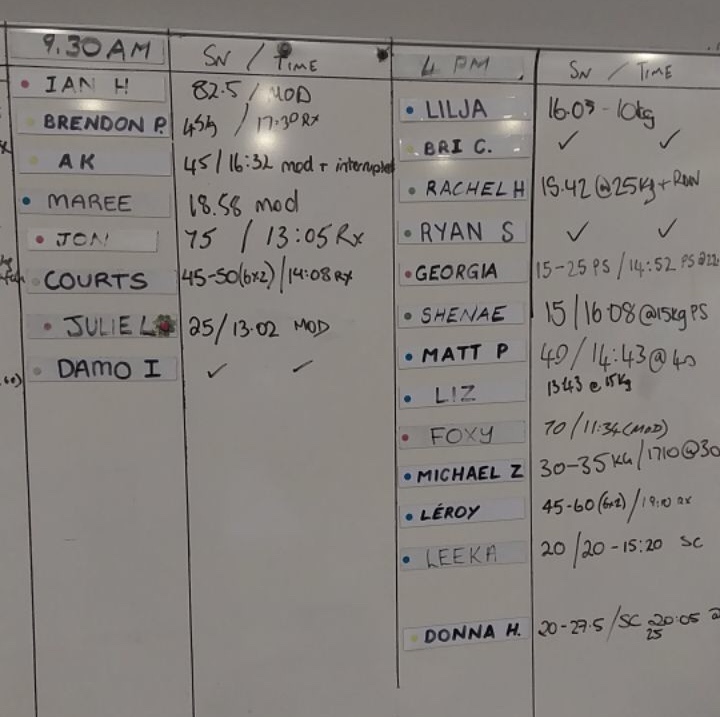 9.30 AM SN / TIME
IAN H 82.5 / MOD
BRENDON P. 45 / 17:30 Rx
AK 45 / 16:32 mod + interrupted
MAREE 18.58 mod
JON 75 / 13:05 Rx
COURTS 45-50 (6x2) / 14:08 Rx
JULIE L 25 / 13.02 MOD
DAMO I ✓ ✓
4 PM SN / TIME
LILJA 16.05 - 10kg
BRI C. ✓ ✓
RACHEL H 15.42 @ 25kg + ROW
RYAN S ✓ ✓
GEORGIA 15-25 PS / 14:52 PS @22
SHENAE 15 / 16.08 @15kg PS
MATT P 40 / 14:43 @ 40
LIZ 13:43 @ 15kg
FOXY 70 / 11:34 (MOD)
MICHAEL Z 30-35 KG / 1710 @30
LÉROY 45-60 (6x2) / Rx
LEEKA 20 / 20 - 15:20 SC
DONNA H. 20-27.5 / SC 20:05 @
25